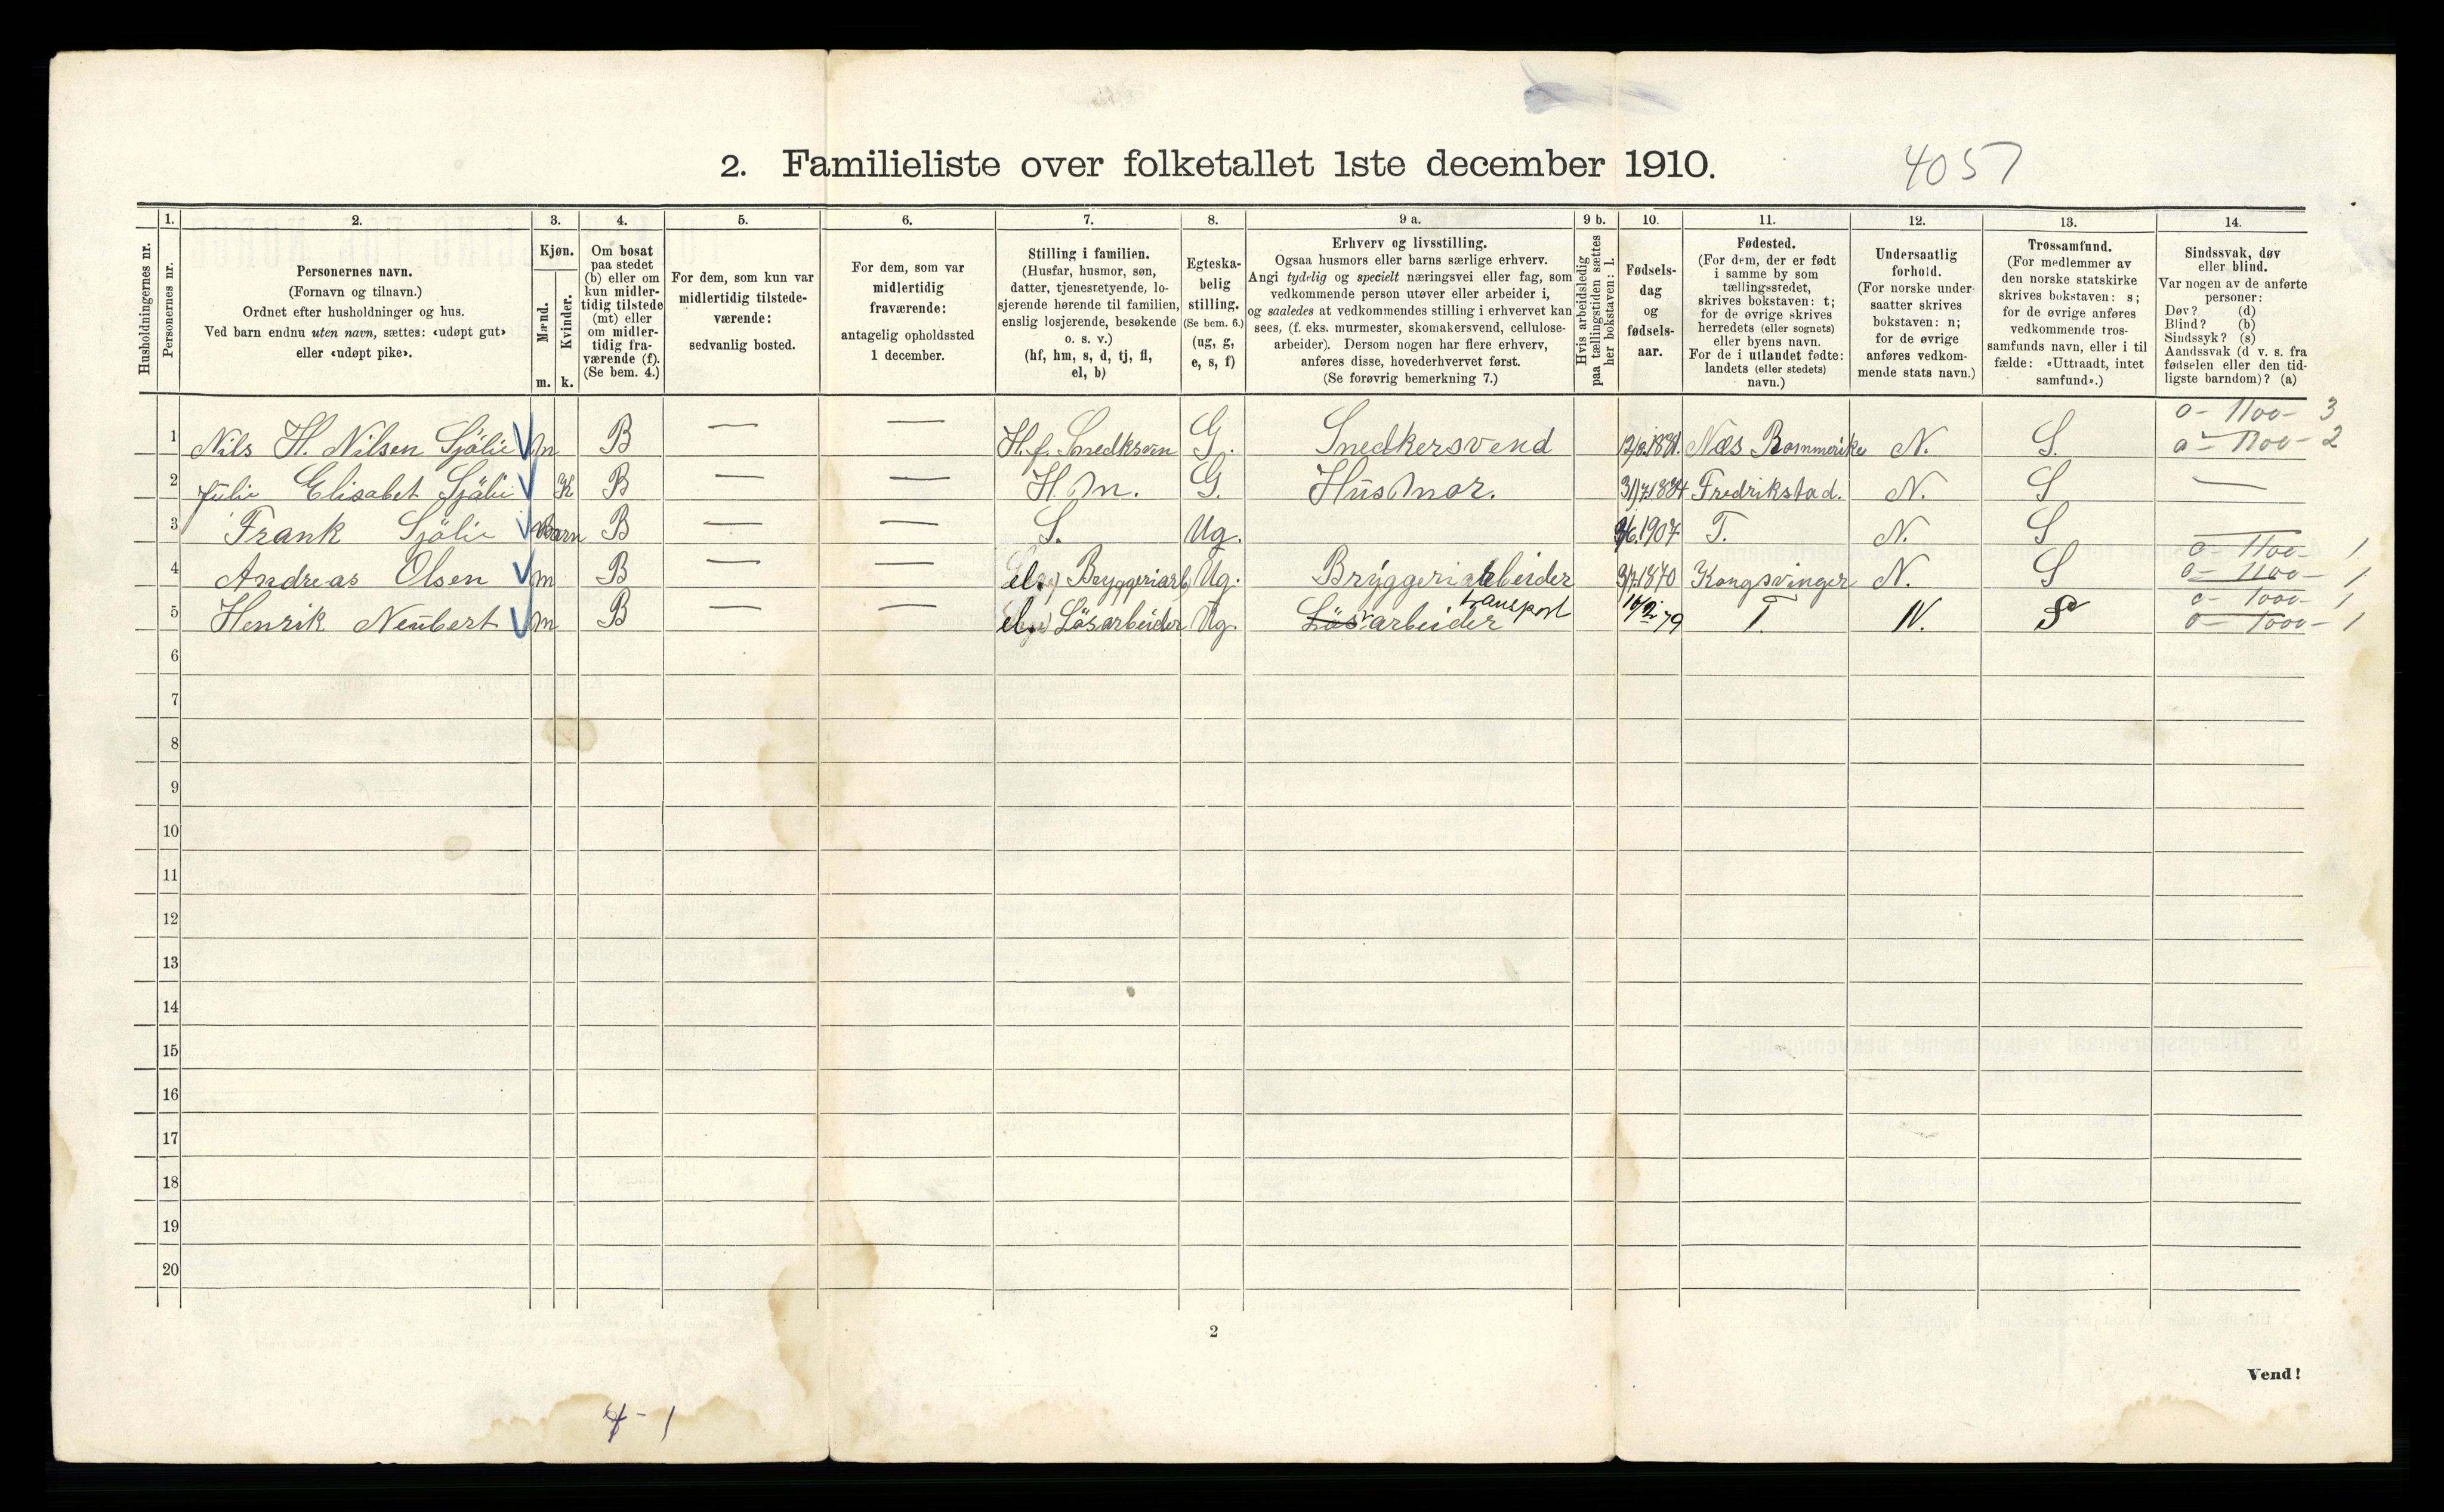 2. Familieliste over folketallet 1ste december 1910.
4057
Husholdningernes nr.
1.
Personernes nr.
2.
Personernes navn.
(Fornavn og tilnavn.)
Ordnet efter husholdninger og hus.
Ved barn endnu uten navn, sættes: «udøpt gut»
eller «udøpt pike».
3.
Kjøn.
Mænd.
Kvinder.
m. k.
4.
Om bosat
paa stedet
(b) eller om
kun midler-
tidig tilstede
(mt) eller
om midler-
tidig fra-
værende (f).
(Se bem. 4.)
5.
For dem, som kun var
midlertidig tilstede-
værende:
sedvanlig bosted.
6.
For dem, som var
midlertidig
fraværende:
antagelig opholdssted
1 december.
7.
Stilling i familien.
(Husfar, husmor, søn,
datter, tjenestetyende, lo-
sjerende hørende til familien,
enslig losjerende, besøkende
o. s. v.)
(hf, hm, s, d, tj, fl,
el, b)
8.
Egteska-
belig
stilling.
(Se bem. 6.)
(ug, g,
e, s, f)
9 a.
Erhverv og livsstilling.
Ogsaa husmors eller barns særlige erhverv.
Angi tydelig og specielt næringsvei eller fag, som
vedkommende person utøver eller arbeider i,
og saaledes at vedkommendes stilling i erhvervet kan
sees, (f. eks. murmester, skomakersvend, cellulose-
arbeider). Dersom nogen har flere erhverv,
anføres disse, hovederhvervet først.
(Se forøvrig bemerkning 7.)
9 b.
Hvis arbeidsledig
paa tællingstiden sættes
her bokstaven: l.
10.
Fødsels-
dag
og
fødsels-
aar.
11.
Fødested.
(For dem, der er født
i samme by som
tællingsstedet,
skrives bokstaven: t;
for de øvrige skrives
herredets (eller sognets)
eller byens navn.
For de i utlandet fødte:
landets (eller stedets)
navn.)
12.
Undersaatlig
forhold.
(For norske under-
saatter skrives
bokstaven: n;
for de øvrige
anføres vedkom-
mende stats navn.)
13.
Trossamfund.
(For medlemmer av
den norske statskirke
skrives bokstaven: s;
for de øvrige anføres
vedkommende tros-
samfunds navn, eller i til
fælde: «Uttraadt, intet
samfund».)
14.
Sindssvak, døv
eller blind.
Var nogen av de anførte
personer:
Døv? (d)
Blind? (b)
Sindssyk? (s)
Aandssvak (d v. s. fra
fødselen eller den tid-
ligste barndom)? (a)
0 - 1100 - 3
1 Nils H. Nilsen Sjölie m B — — H.f. Snedksven G. Snedkersvend Næs Rommerike N. S. 0 - 1100 - 2
2 Julie Elisabet Sjölie K B — — H.m. G. Husmor. 31/7.1884 Fredrikstad. N. S —
3 Frank Sjölie Barn B — — S. Ug. 1907 T. N. S
0 - 1100 - 1
4 Andreas Olsen m B — — el. Bryggeriarb Ug. Bryggeriarbeider 3/7.1870 Kongsvinger N. S 0 - 1100 - 1
transport 0 - 1000 - 1
5 Henrik Neubert m B — — el. Lösarbeider Ug. Lösarbeider 79 T. N. S 0 - 1000 - 1
6
7
8
9
10
11
12
13
14
15
16
17
18
19
20
2
Vend!
4 - 1